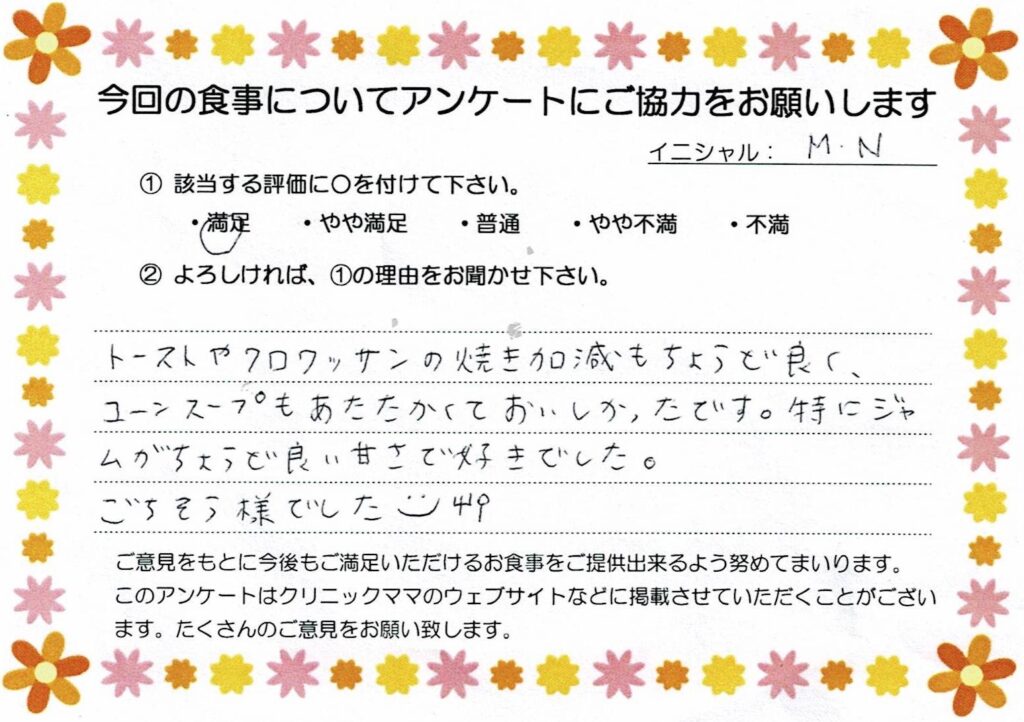 今回の食事についてアンケートにご協力をお願いします
イニシャル： M.N
① 該当する評価に〇を付けて下さい。
・満足 ・やや満足 ・普通 ・やや不満 ・不満
② よろしければ、①の理由をお聞かせ下さい。
トーストやクロワッサンの焼き加減もちょうど良く、
コーンスープもあたたかくておいしかったです。特にジャ
ムがちょうど良い甘さで好きでした。
ごちそう様でした
ご意見をもとに今後もご満足いただけるお食事をご提供出来るよう努めてまいります。
このアンケートはクリニックママのウェブサイトなどに掲載させていただくことがござい
ます。たくさんのご意見をお願い致します。